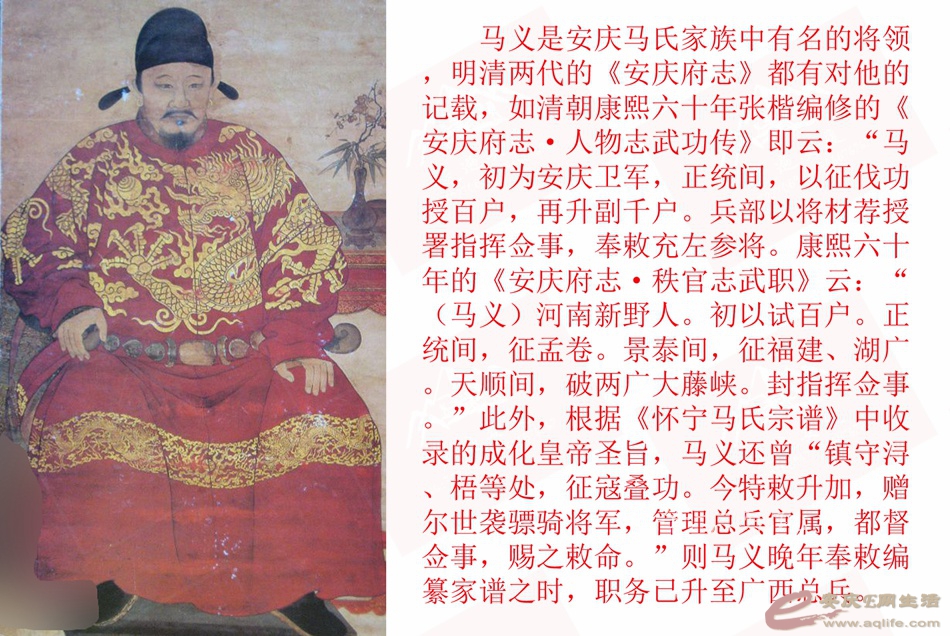 马义是安庆马氏家族中有名的将领
，明清两代的《安庆府志》都有对他的
记载，如清朝康熙六十年张楷编修的《
安庆府志·人物志武功传》即云：“马
义，初为安庆卫军，正统间，以征伐功
授百户，再升副千户。兵部以将材荐授
署指挥佥事，奉敕充左参将。康熙六十
年的《安庆府志·秩官志武职》云：“
（马义）河南新野人。初以试百户。正
统间，征孟卷。景泰间，征福建、湖广
。天顺间，破两广大藤峡。封指挥佥事
。”此外，根据《怀宁马氏宗谱》中收
录的成化皇帝圣旨，马义还曾“镇守浔
、梧等处，征寇叠功。今特敕升加，赠
尔世袭骠骑将军，管理总兵官属，都督
佥事，赐之敕命。”则马义晚年奉敕编
纂家谱之时，职务已升至广西总兵。
安庆E网生活
www.aqlife.com